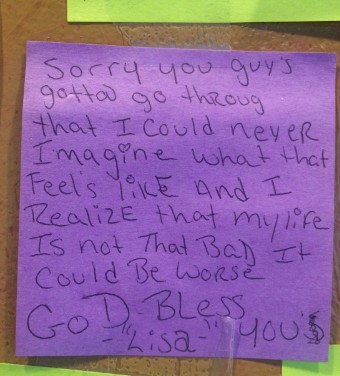 Sorry you guy's
gotta go throug
that I Could never
Imagine what that
Feel's liKE And I
REalizE that my life
Is not That BaD It
Could Be WorsE
GoD-BLess
-"Lisa-" you's